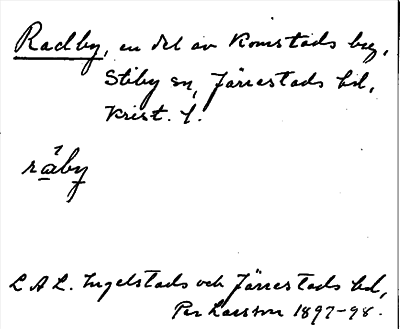 Radby, en del av Komstads by,
Stiby sn, Järrestads hd,
Krist. l.
ráby
L A L. Ingelstads och Järrestads hd,
Per Larsson 1897-98.